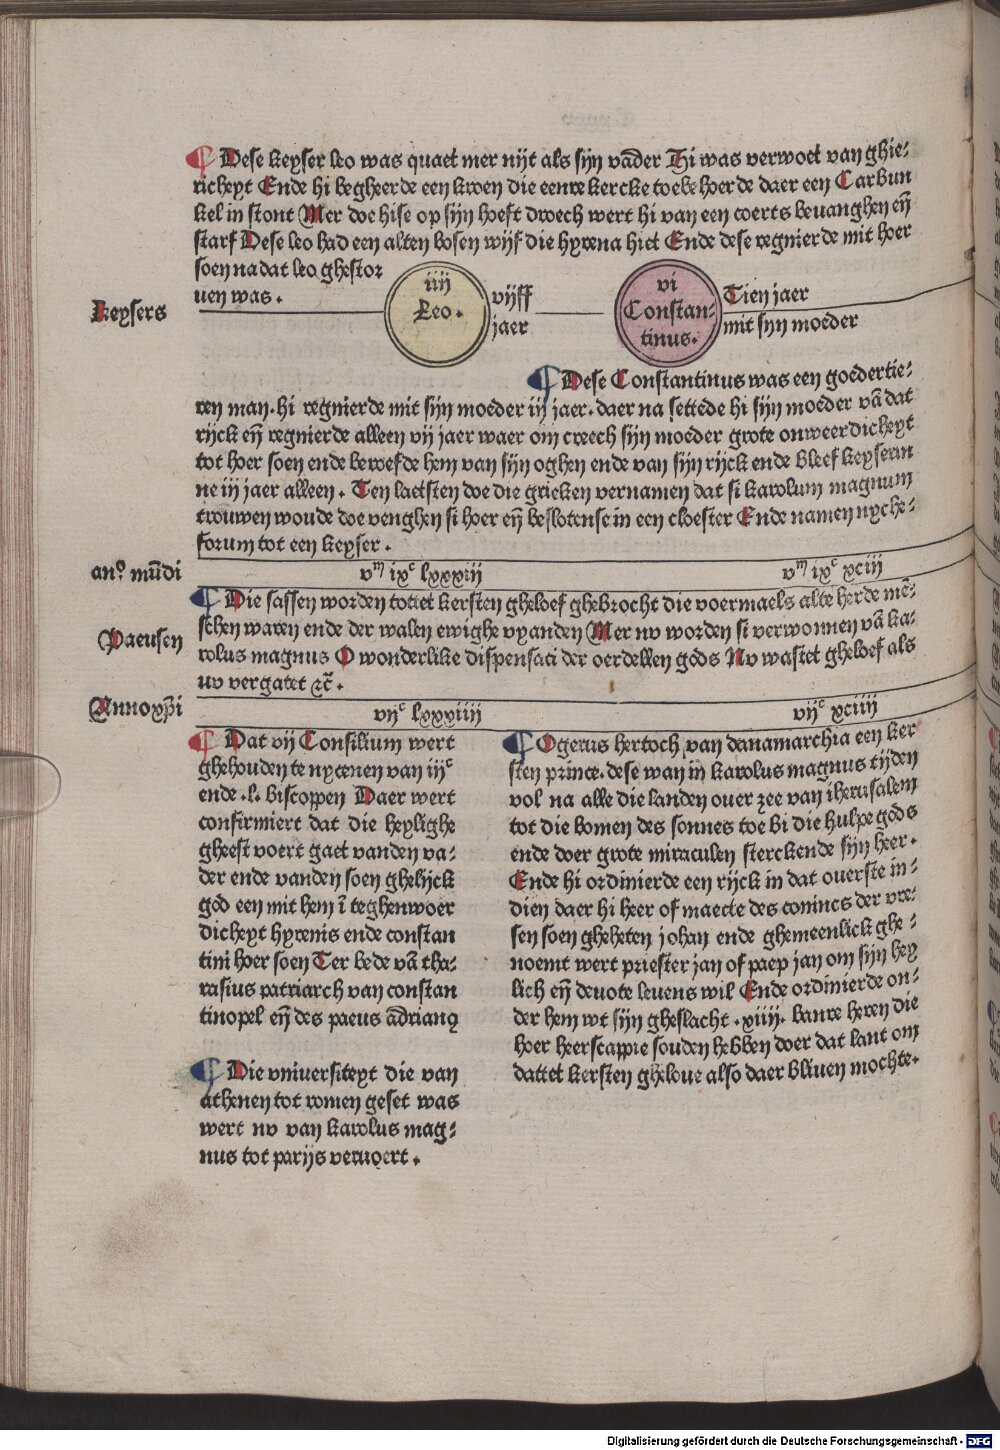 ¶ Dese keyser leo was quaet mer nijt als sijn vāder Hi was verwoet van ghie⸗
richeyt Ende hi begheerde een kroen die eenre kercke toebehoerde daer een Carbun
kel in stont Mer doe hise op sijn hoeft droech wert hi van een coerts beuanghen eñ
starf Dese leo had een alten bosen wijf die hyrena hiet Ende dese regnierde mit hoer
soen na dat leo ghestor
uen was.
keysers
iiij
Leo.
vijff
jaer
vi
Constan⸗
tinus.
Tien jaer
mit sijn moeder
¶ Dese Constantinus was een goedertie⸗
ren man. hi regnierde mit sijn moeder iij jaer. daer na settede hi sijn moeder vā dat
rijck eñ regnierde alleen vij jaer waer om creech sijn moeder grote onweerdicheyt
tot hoer soen ende beroefde hem van sijn oghen ende van sijn rijck ende bleef keyserin
ne iij jaer alleen. Ten laetsten doe die grieken vernamen dat si karolum magnum
trouwen woude doe venghen si hoer eñ beslotense in een cloester Ende namen nyche⸗
forum tot een keyser.
an⁰ mūdi
vᵐ ixᶜ lxxxiij
vᵐ ixᶜ xciij
¶ Die sassen worden tottet kersten gheloef ghebrocht die voermaels alte herde mē⸗
schen waren ende der walen ewighe vyanden Mer nv worden si verwonnen vā ka⸗
rolus magnus O wonderlike dispensaci der oerdellen gods Nv wastet gheloef als
uv vergatet ⁊c̄.
Paeusen
Anno xp̄i
vijᶜ lxxxiiij
vijᶜ xciiij
¶ Dat vij Consilium wert
ghehouden te nycenen van iijᶜ
ende .l. biscoppen Daer wert
confirmiert dat die heylighe
gheest voert gaet vanden va⸗
der ende vanden soen ghelijck
god een mit hem ī teghenwoer
dicheyt hyrenis ende constan
tini hoer soen Ter bede vā tha⸗
rasius patriarch van constan
tinopel eñ des paeus ādrianꝯ
¶ Die vniuersiteyt die van
athenen tot romen geset was
wert nv van karolus mag⸗
nus tot parijs veruoert.
¶ Ogerus hertoch van danamarchia een ker
sten prince. dese wan in karolus magnus tijden
vol na alle die landen ouer zee van iherusalem
tot die bomen des sonnes toe bi die hulpe gods
ende doer grote miraculen sterckende sijn heer.
Ende hi ordinierde een rijck in dat ouerste in⸗
dien daer hi heer of maecte des conincs der vre⸗
sen soen gheheten johan ende ghemeenlick ghe⸗
noemt wert priester jan of paep jan om sijn hey
lich eñ deuote leuens wil Ende ordinierde on⸗
der hem wt sijn gheslacht .xiiij. banre heren die
hoer heerscappie souden hebben doer dat lant om
dattet kersten gheloue also daer bliuen mochte.
Digitalisierung gefördert durch die Deutsche Forschungsgemeinschaft - DFG